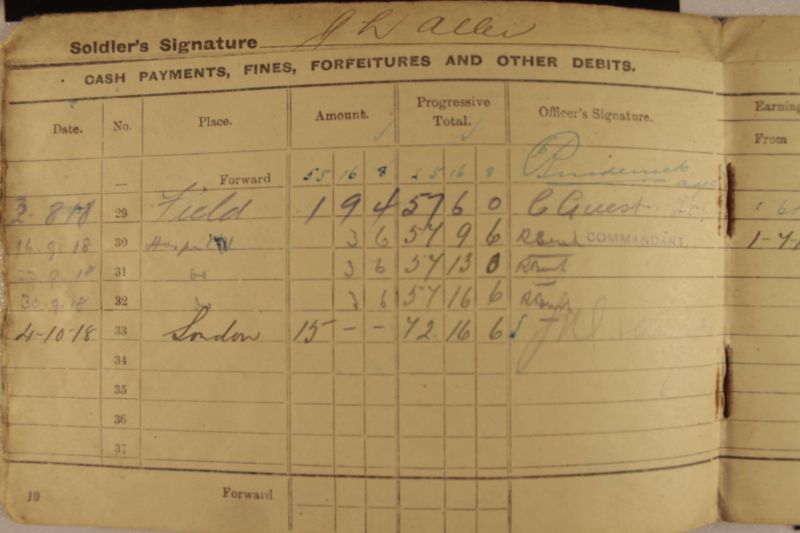 Soldier's Signature
CASH PAYMENTS, FINES, FORFEITURES AND OTHER DEBITS.
Date. No. Place. Amount. Progressive Total. Officer's Signature. Earning
From
— Forward 55 16 8 55 16 8
2-8-18 29 Field 1 9 4 57 6 0 C Guest
16.9.18 30 Hospital 3 6 57 9 6 COMMANDANT 1-7-1
31 do 3 6 57 13 0
30.9.18 32 do 3 6 57 16 6
4-10-18 33 London 15 - - 72 16 6
34
35
36
37
10 Forward